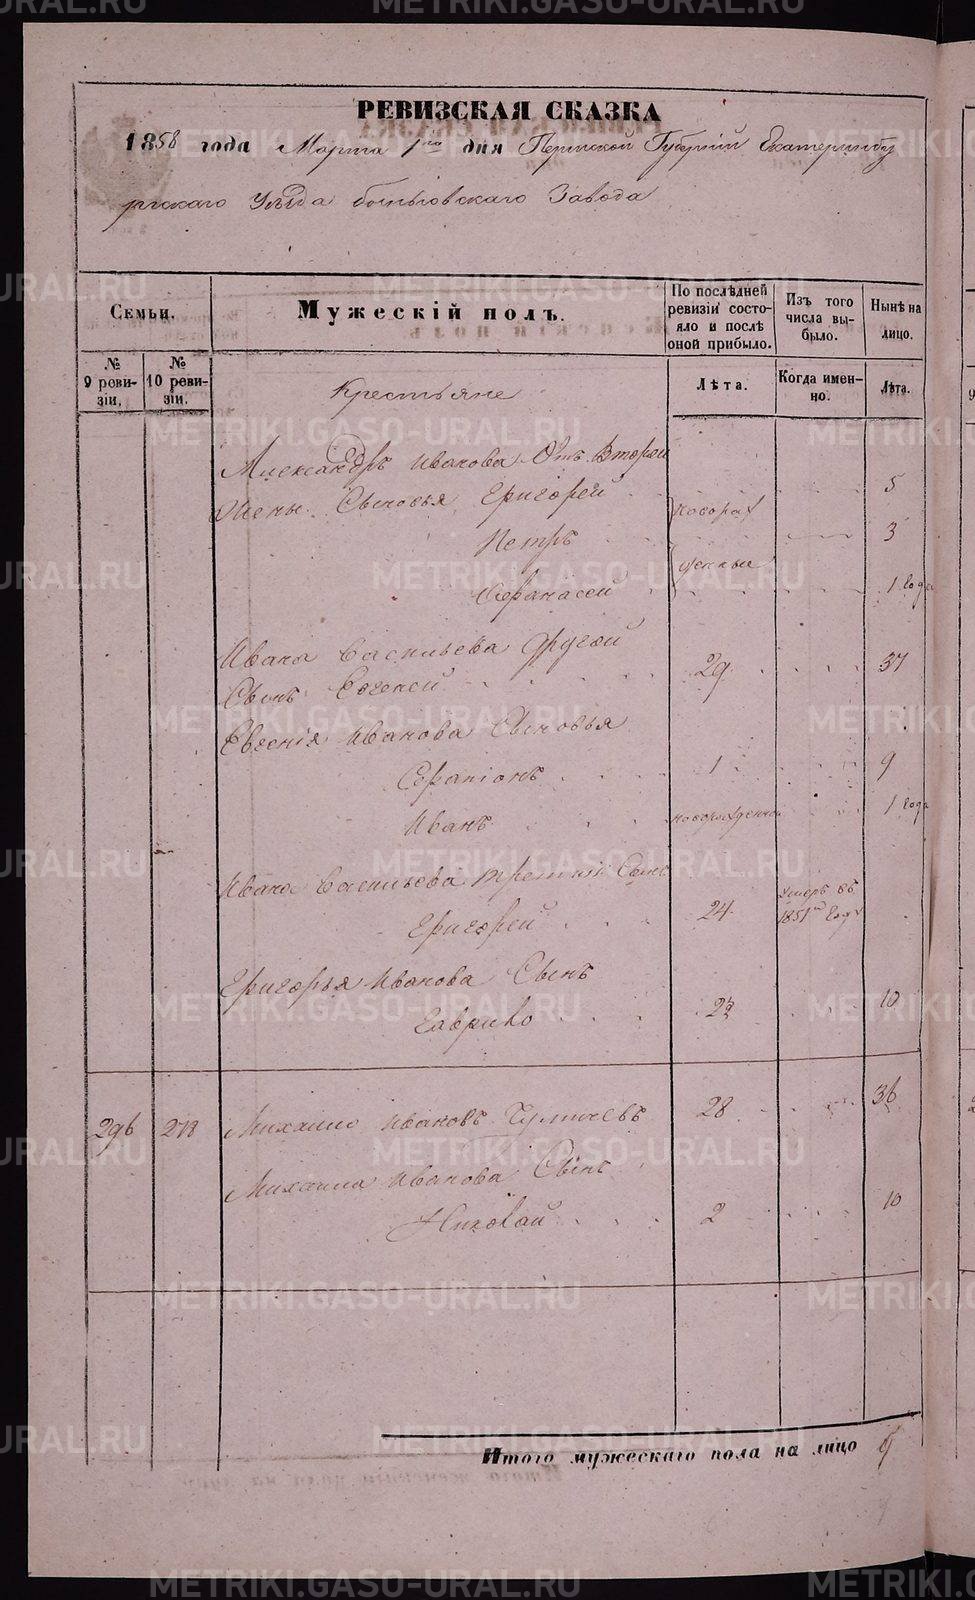 РЕВИЗСКАЯ СКАЗКА
1858 года Марта 1го дня Пермской Губерніи Екатеринбу
ргскаго Уѣзда Завода
Семьи.
Мужескій полъ.
По послѣдней ревизіи состояло и послѣ оной прибыло.
Изъ того числа выбыло.
Нынѣ на лицо.
№ 9 ревизіи.
№ 10 ревизіи.
Лѣта.
Когда именно.
Лѣта.
Крестьяне
Александръ Иванова Отъ Второй
Жены Сыновья Григорей 5
Петръ 3
новорожденные
Афанасей 1 года
Ивана Васильева другой
Сынъ Евгеней 29 37
Евгенія Иванова Сыновья
Серапіонъ 1 9
Иванъ новорожденной 1 года
Ивана Васильева третій Сынъ
Григорей 24 Умеръ въ 1851м Году
Григорья Иванова Сынъ
Гаврило 2 10
296 278 Михайло Ивановъ 28 36
Михайла Иванова Сынъ
Николай 2 10
Итого мужескаго пола на лицо 9
METRIKI.GASO-URAL.RU